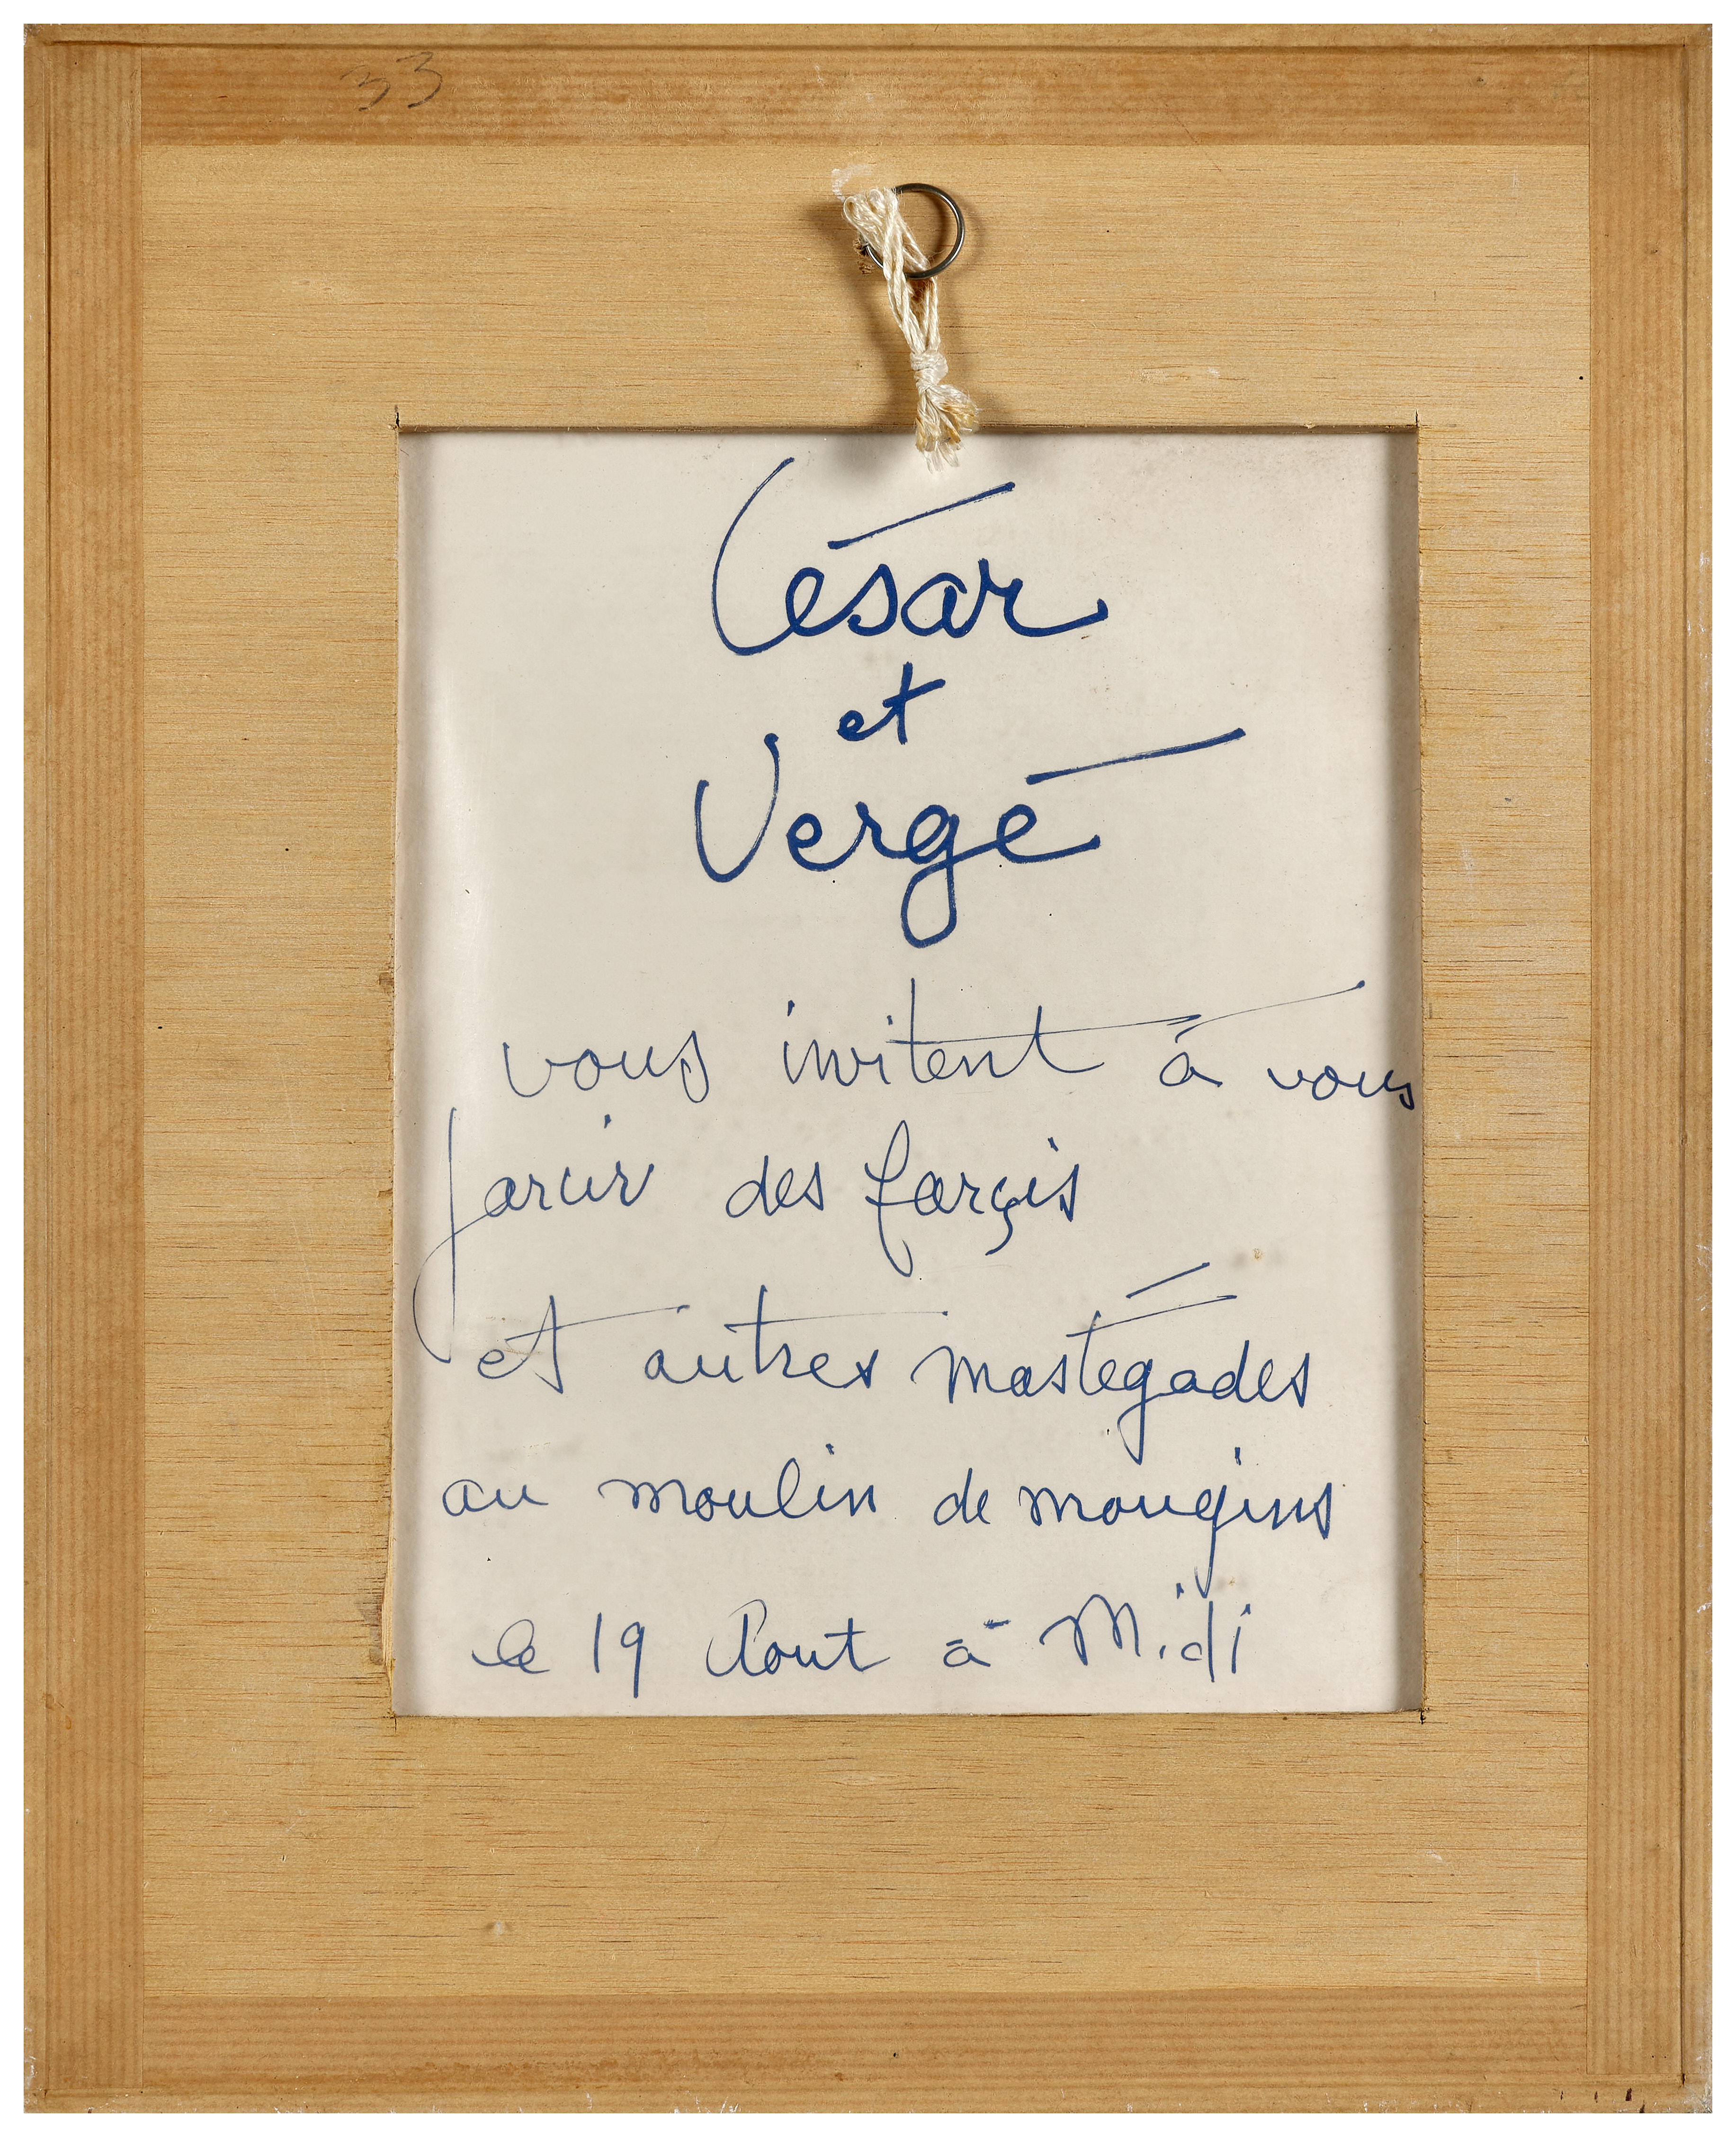 33
César
et
Vergé
vous invitent à vous
farcir des farçis
et autres mastégades
au moulin de mougins
le 19 Aout à Midi